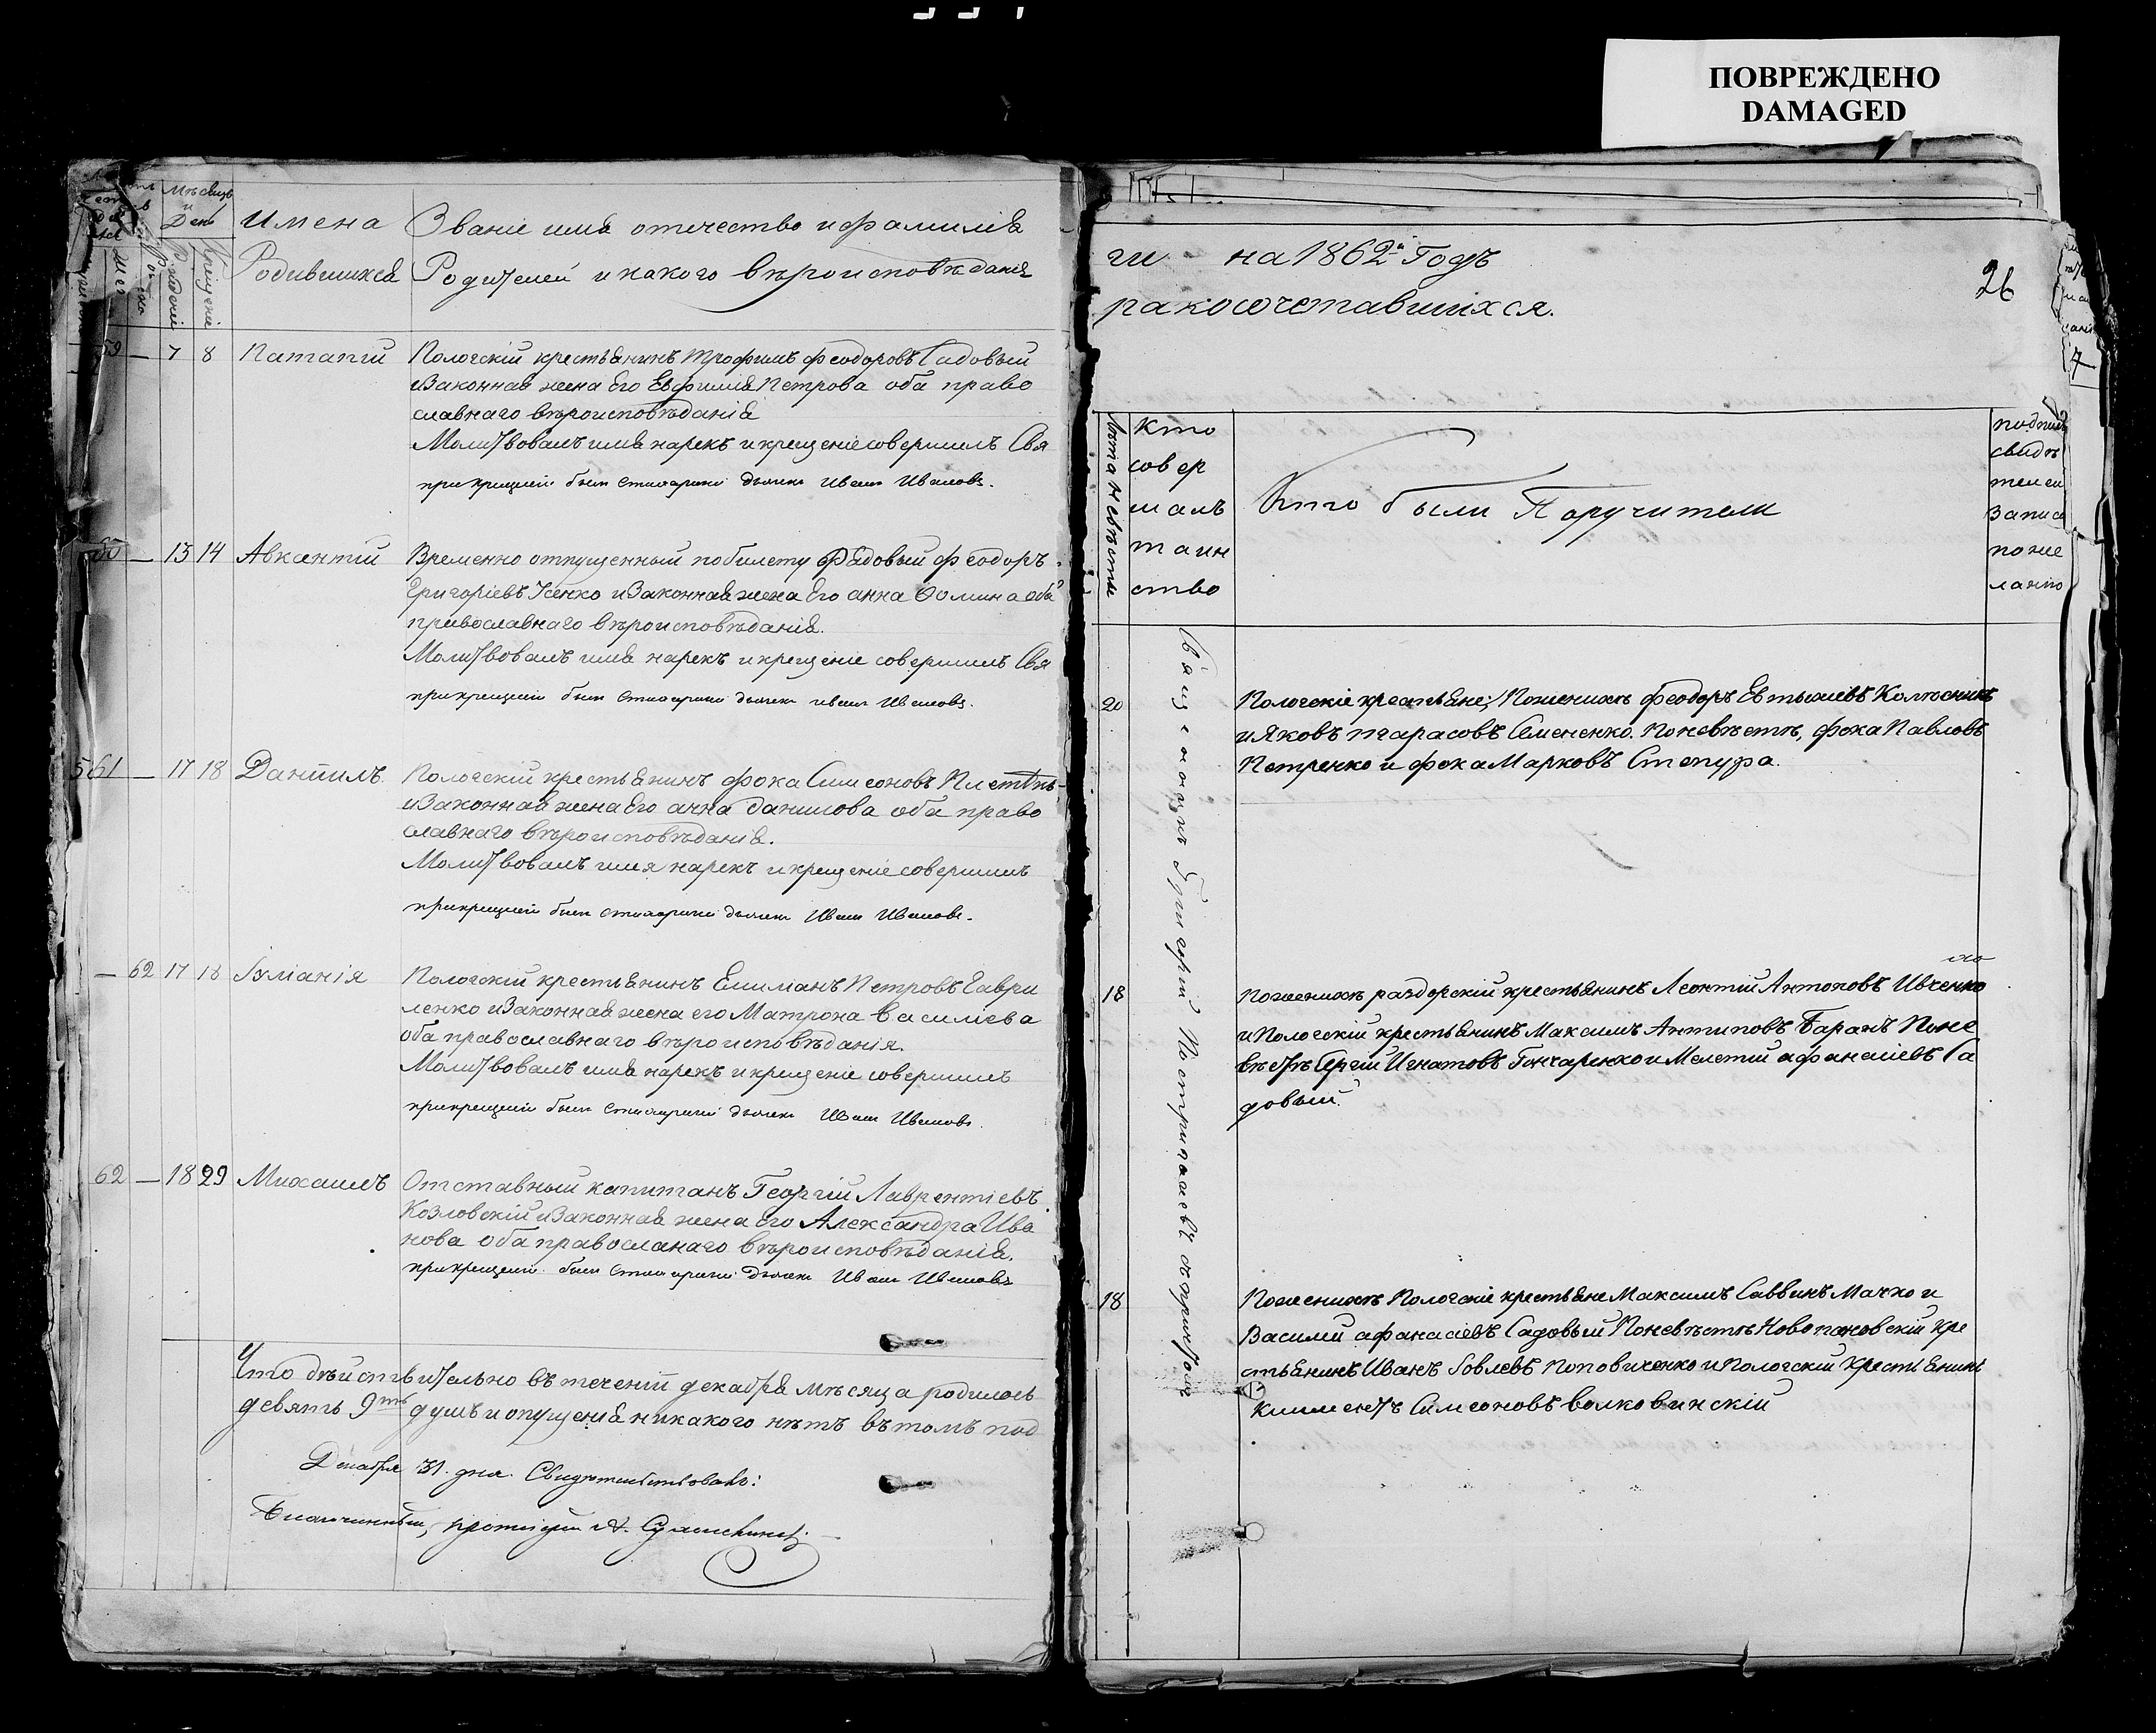 ПОВРЕЖДЕНО
DAMAGED
Мѣсяцъ
и
День
Имена
Родившихся
Званіе имя отчество и фамилія
Родителей и какого вѣроисповѣданія
59 — 7 8 Патапій
Пологскій крестьянинъ Трофимъ Феодоровъ Садовый
и Законная жена Его Евфимія Петрова оба право
славнаго вѣроисповѣданія
Молитвовалъ имя нарекъ и крещеніе совершилъ Свя
при крещеніи былъ стихарный дьячекъ Иванъ Ивановъ.
60 — 13 14 Авксентій
Временно отпущенный по билету рядовый Феодоръ
Григоріевъ Усенко и Законная жена Его Анна Фомина оба
православнаго вѣроисповѣданія.
Молитвовалъ имя нарекъ и крещеніе совершилъ Свя
при крещеніи былъ стихарный дьячекъ Иванъ Ивановъ.
61 — 17 18 Даніилъ
Пологскій крестьянинъ Фока Симеоновъ
и Законная жена Его Анна Данилова оба право
славнаго вѣроисповѣданія.
Молитвовалъ имя нарекъ и крещеніе совершилъ
при крещеніи былъ стихарный дьячекъ Иванъ Ивановъ.
— 62 17 18 Іуліанія
Пологскій крестьянинъ Емиліанъ Петровъ Гаври
ленко и Законная жена его Матрона Василіева
оба православнаго вѣроисповѣданія.
Молитвовалъ имя нарекъ и крещеніе совершилъ
при крещеніи былъ стихарный дьячекъ Иванъ Ивановъ.
62 — 18 29 Михаилъ
Отставный капитанъ Георгій Лаврентіевъ
Козловскій и Законная жена его Александра Ива
нова оба православнаго вѣроисповѣданія.
при крещеніи былъ стихарный дьячекъ Иванъ Ивановъ
Что дѣйствительно въ теченіи декабря мѣсяца родилось
девять 9ть душъ и опущенія никакого нѣтъ въ томъ под
Декабря 31. дня. Свидѣтельствовалъ:
Благочинный,
ги на 1862й Годъ
ракосочетавшихся.
26
Лѣта невѣсты
Кто
совер
шалъ
таин
ство
Кто были Поручители
подпись
свидѣ
телей
записи
по же
ланію
Священникъ Григорій
20
Пологскіе крестьяне; По женихѣ Феодоръ Евтыхіевъ Колѣсникъ
и Яковъ Тарасовъ Семененко. По невѣстѣ, Фока Павловъ
Петренко и Фока Марковъ Степура.
18
По женихѣ раздорскій крестьянинъ Леонтій Антоновъ Ивченко
и Пологскій крестьянинъ Максимъ Антиповъ Баранъ По не
вѣстѣ Сергій Игнатовъ Гончаренко и Мелетій Афанасіевъ Са
довый.
18
По женихѣ Пологскіе крестьяне Максимъ Саввинъ Мачко и
Василій Афанасіевъ Садовый По невѣстѣ Новопановскій кре
стьянинъ Иванъ Іовлевъ Поповиченко и Пологскій Крестьянинъ
Климентъ Симеоновъ Волковинскій